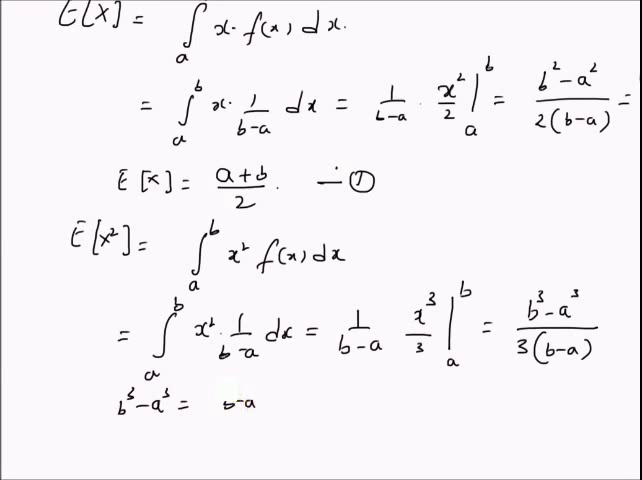 E[X] = ∫ₐ x. f(x) dx.
= ∫ₐᵇ x. 1/(b-a) dx = 1/(b-a) . x²/2 |ₐᵇ = (b²-a²)/(2(b-a)) =
E[x] = (a+b)/2. — ①
E[x²] = ∫ₐᵇ x² f(x) dx
= ∫ₐᵇ x². 1/(b-a) dx = 1/(b-a) x³/3 |ₐᵇ = (b³-a³)/(3(b-a))
b³-a³ = b-a